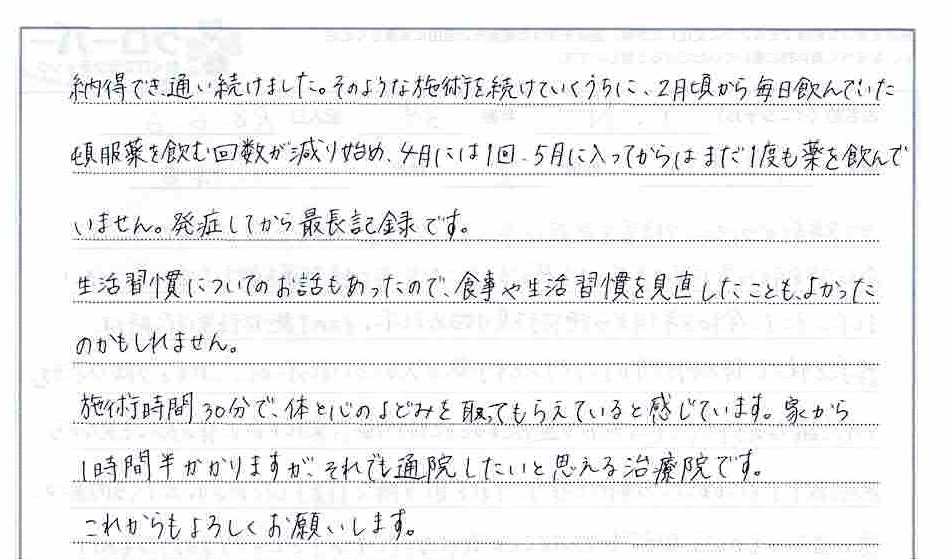 納得でき、通い続けました。そのような施術を続けていくうちに、2月頃から毎日飲んでいた
頓服薬を飲む回数が減り始め、4月には1回、5月に入ってからはまだ1度も薬を飲んで
いません。発症してから最長記録です。
生活習慣についてのお話もあったので、食事や生活習慣を見直したことも、よかった
のかもしれません。
施術時間30分で、体と心のよどみを取ってもらえていると感じています。家から
1時間半かかりますが、それでも通院したいと思える治療院です。
これからもよろしくお願いします。